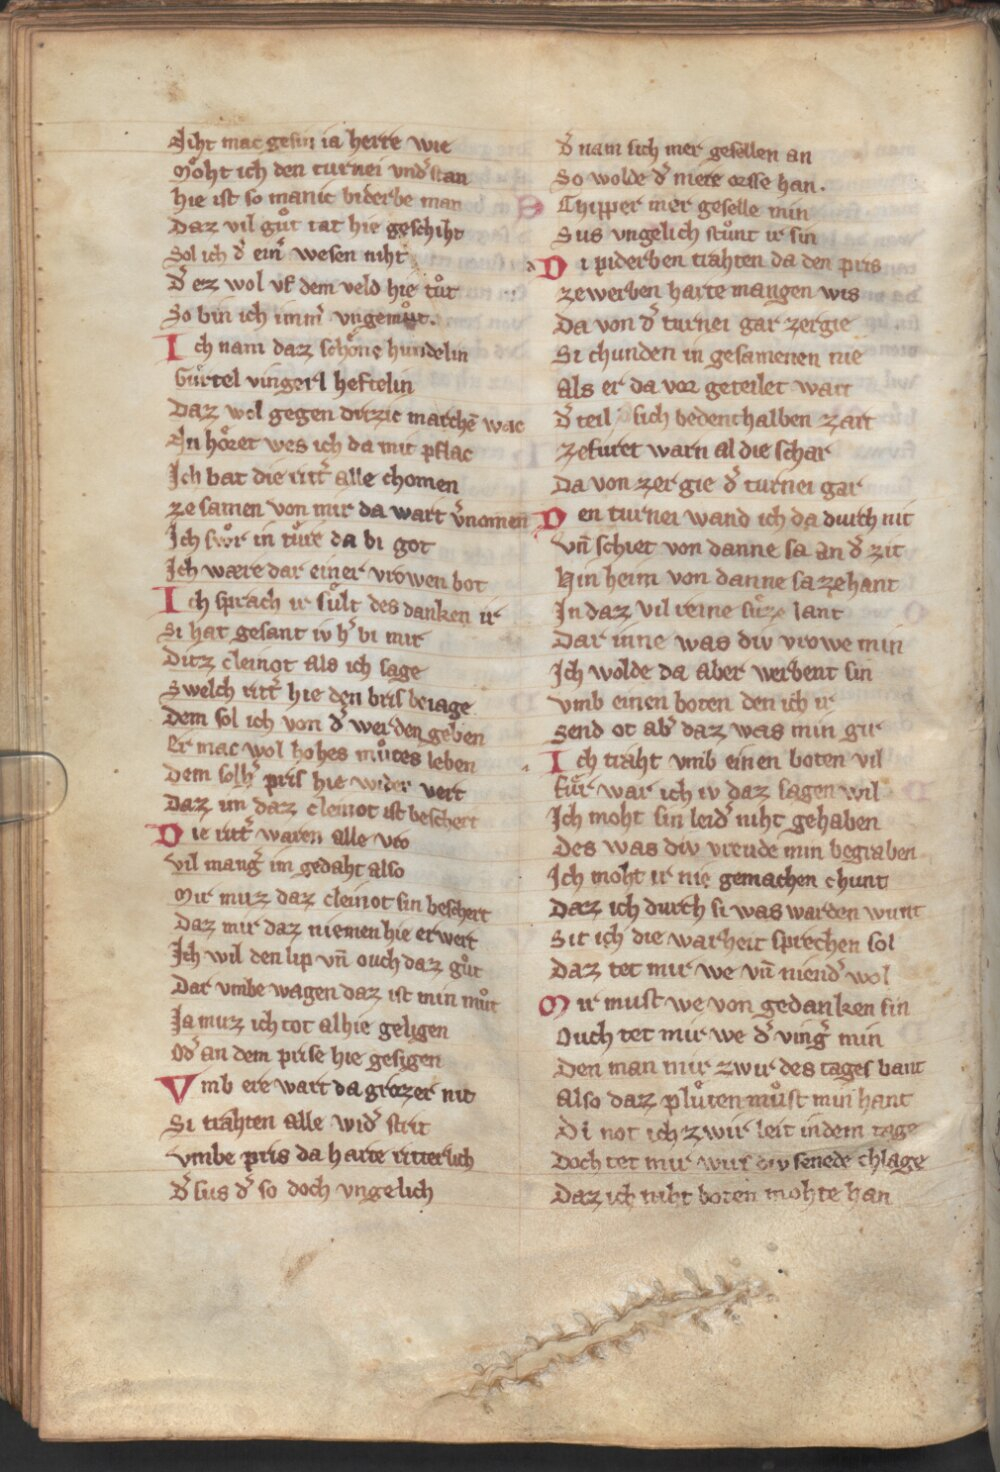 Niht mac gesin ia herre wie
Moͤht ich den turnei vnd̓stan
hie ist so manic biderbe man
Daz vil guͦt tat hie geschiht
Sol ich d̓ ein̓ wesen niht
D̓ ez wol vf dem veld hie tuͦt
So bin ich imm̓ vngemuͦt.
Ich nam daz schoͤne hundelin
Guͤrtel vingerl heftelin
Daz wol gegen drizic marchē wac
Nu hoͤret wes ich da mit pflac
Ich bat die ritt̓ alle chomen
ze samen von mir da wart v̓nomen
Ich swoͦr in tuͤre da bi got
Ich wære dar einer vrowen bot
Ich sprach ir suͤlt des danken ir
Si hat gesant iv h̓ bi mir
Ditz cleinot als ich sage
Swelch ritt̓ hie den bris beiage
Dem sol ich von d̓ werden geben
Er mac wol hohes muͦtes leben
Dem solh̓ pris hie wider vert
Daz im daz cleinot ist beschert
Die ritt̓ waren alle vro
vil mang̓ im gedaht also
Mir muz daz cleinot sin beschert
Daz mir daz niemen hie erwert
Ich wil den lip vn̄ ouch daz guͦt
Dar vmbe wagen daz ist min muͦt
Ja muz ich tot alhie geligen
Od̓ an dem prise hie gesigen
Vmb ere wart da grozer nit
Si trahten alle wid̓ strit
vmbe pris da harte ritterlich
d̓ sus d̓ so doch vngelich
d̓ nam sich mer gesellen an
So wolde d̓ mere orsse han.
Thipper mer geselle min
Sus vngelich stuͦnt ir sin
Di piderben trahten da den pris
zewerben harte mangen wis
Da von d̓ turnei gar zergie
Si chunden in gesamenen nie
Als er da vor geteilet wart
d̓ teil sich bedenthalben zart
zefuret warn al die schar
Da von zer gie d̓ turnei gar
Den turnei wand ich da durch nit
Vn̄ schiet von danne sa an d̓ zit
Hin heim von danne sa zehant
In daz vil reine suͤze lant
Dar inne was div vrowe min
Ich wolde da aber werbent sin
vmb einen boten den ich ir
send ot ab̓ daz was min gir
Ich traht vmb einen boten vil
fuͤr war ich iv daz sagen wil
Ich moht sin leid̓ niht gehaben
Des was div vreude min begraben
Ich moht ir nie gemachen chunt
Daz ich durch si was warden wunt
Sit ich die warheit sprechen sol
Daz tet mir we vn̄ niend̓ wol
Mir must we von gedanken sin
Ouch tet mir we d̓ ving̓ min
Den man mir zwir des tages bant
Also daz pluͤten muͦst min hant
Di not ich zwir leit in dem tage
Doch tet mir wirs div senede chlage
Daz ich niht boten mohte han